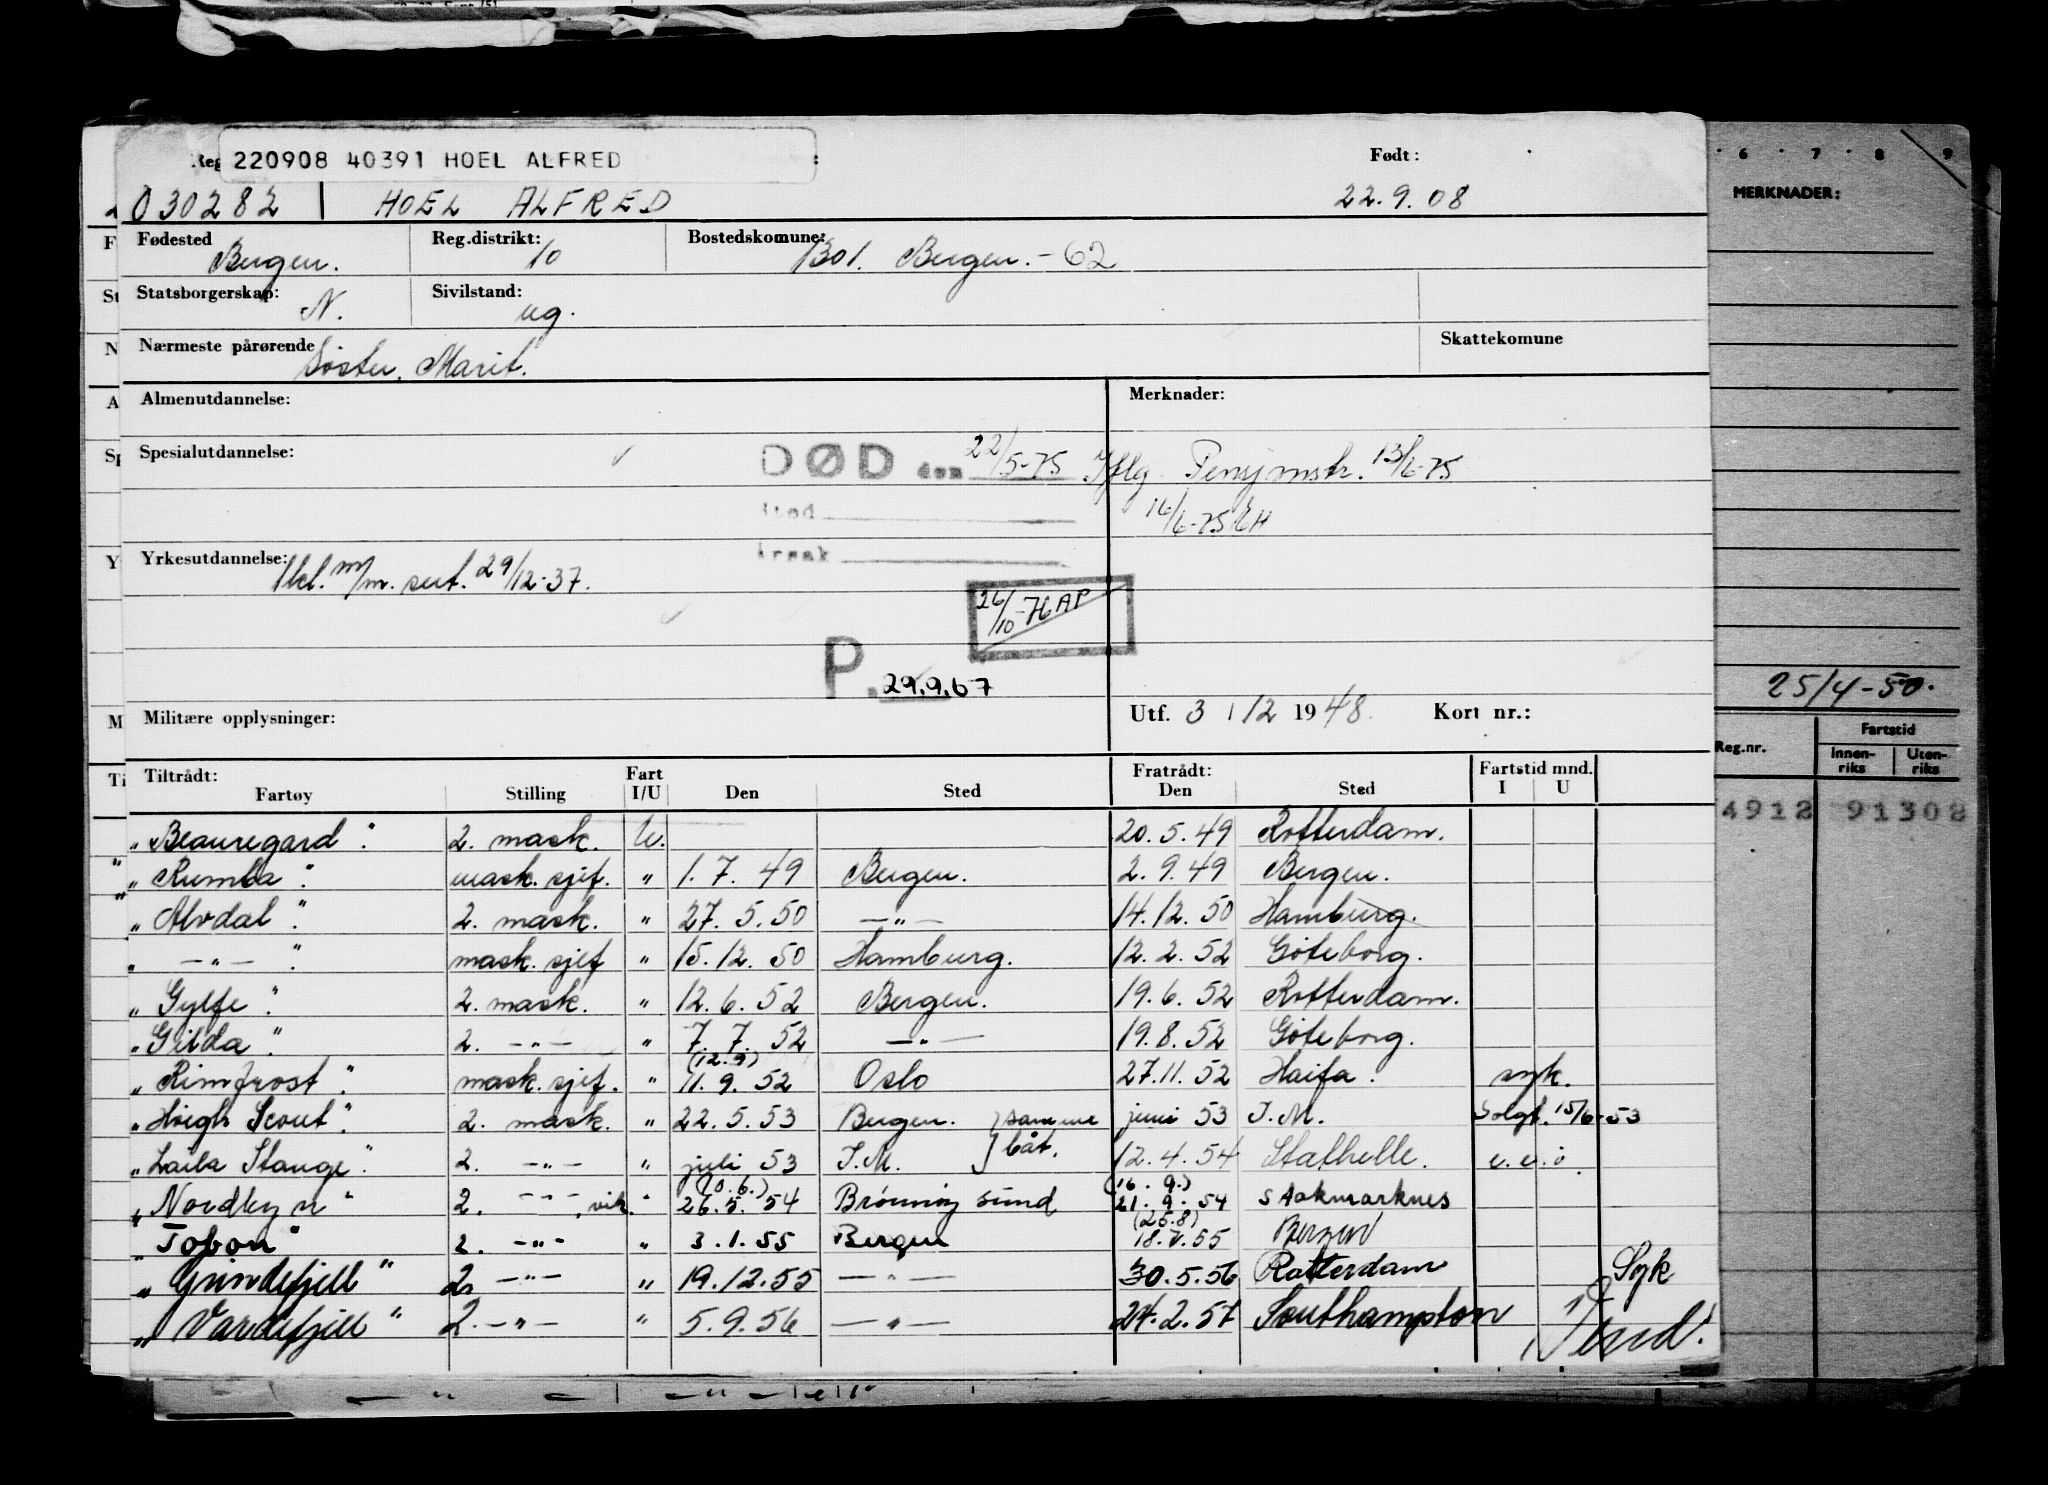 220908 40391 HOEL ALFRED
Født:
030282 HOEL ALFRED 22.9.08
Fødested Bergen. Reg.distrikt: 10 Bostedskomune: 1301. Bergen. - 62
Statsborgerskap: N. Sivilstand: ug.
Nærmeste pårørende Søster, Marit. Skattekomune
Almenutdannelse: Merknader:
Spesialutdannelse: DØD den 22/5-75 Iflg. 13/6-75
Sted 16/6-75 EH
Årsak
Yrkesutdannelse: 1kl. m/m. sert. 29/12-37.
26/10-76 AP
P. 29.9.67
Militære opplysninger: Utf. 3/12 1948. Kort nr.:
Tiltrådt: Fratrådt: Fartstid mnd.
Fartøy Stilling Fart I/U Den Sted Den Sted I U
"Beauregard". 2. mask. U. 20.5.49 Rotterdam.
"Rumba". mask. sjef. " 1.7.49 Bergen. 2.9.49 Bergen.
"Alvdal". 2. mask. " 27.5.50 —"— 14.12.50 Hamburg.
" —"— ". mask. sjef " 15.12.50 Hamburg. 12.2.52 Göteborg.
"Gylfe". 2. mask. " 12.6.52 Bergen. 19.6.52 Rotterdam.
"Gilda". 2. —"— " 7.7.52 —"— 19.8.52 Göteborg.
(12.9)
"Rimfrost". mask. sjef. " 11.9.52 Oslo 27.11.52 Haifa. syk.
"High Scout". 2. mask. " 22.5.53 Bergen. } samme juni 53 I.M. Solgt. 15/6-53
"Laila Stange". 2. —"— " juli 53 I.M. } båt. 12.4.54 Stathelle. e.e.ö.
(10.6.) (16.9.)
"Nordkyn" 2. —"—, vik. " 26.5.54 Brönnöysund 21.9.54 Stokmarknes
(25.8)
"Tobon" 2. —"— " 3.1.55 Bergen 18.7.55 Bergen
"Grindefjell" 2. —"— " 19.12.55 —"— 30.5.56 Rotterdam Syk
"Vardefjell" 2. —"— " 5.9.56 —"— 24.2.57 Southampton
Vend!
6 7 8 9
MERKNADER:
25/4-50.
Reg.nr. Fartstid
Innen-riks Uten-riks
4912 91308